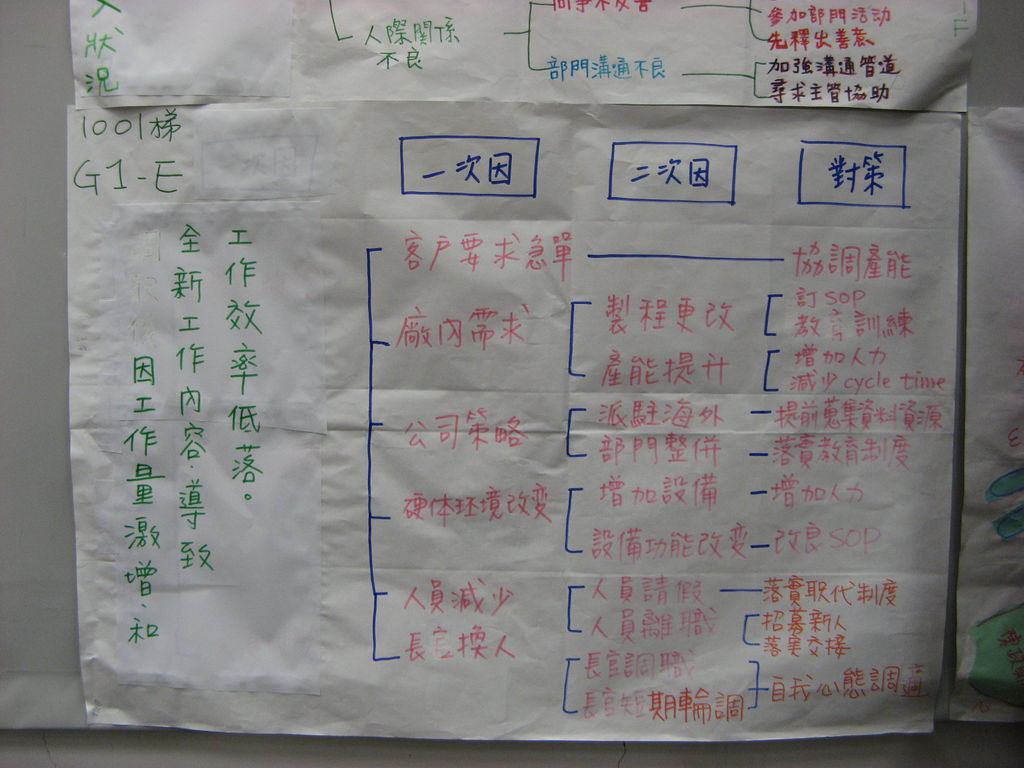 狀
況
人際關係
不良
部門溝通不良
參加部門活动
先釋出善意
加強溝通管道
尋求主管協助
1001梯
G1-E
一次因
二次因
對策
工作效率低落。
全新工作內容.導致
因工作量激增.和
客戶要求急單
協調產能
廠內需求
製程更改
訂SOP
教育訓練
產能提升
增加人力
減少cycle time
公司策略
派駐海外
提前蒐集資料資源
部門整併
落實教育制度
硬体环境改变
增加設備
增加人力
設備功能改变
改良SOP
人員減少
人員請假
落實职代制度
人員離職
招募新人
落実交接
長官換人
長官調職
長官短期輪調
自我心態調適